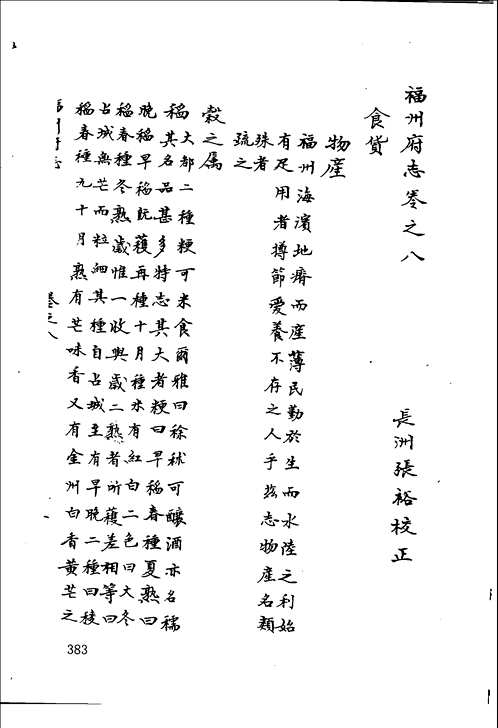 福州府志卷之八
長洲張裕校正
食貨
物產
福州海濱地瘠而產薄民勤於生而水陸之利始
有足用者撙節愛養不存之人乎玆志物產名類
殊者
疏之
穀之属
稻大都二種粳可米食爾雅曰稌秫可釀酒亦名穤
其名品甚多特志其大者粳曰早稻春種夏熟曰
晚稻早稻既穫再種十月種米有紅白二色曰大冬
稻春種冬熟歲惟一收與歲二熟者所穫差相等曰
占城無芒而粒細其種自占城至有早晚二種曰稜
稻春種九十月熟有芒味香又有金州白香黃芒之
卷之八
383